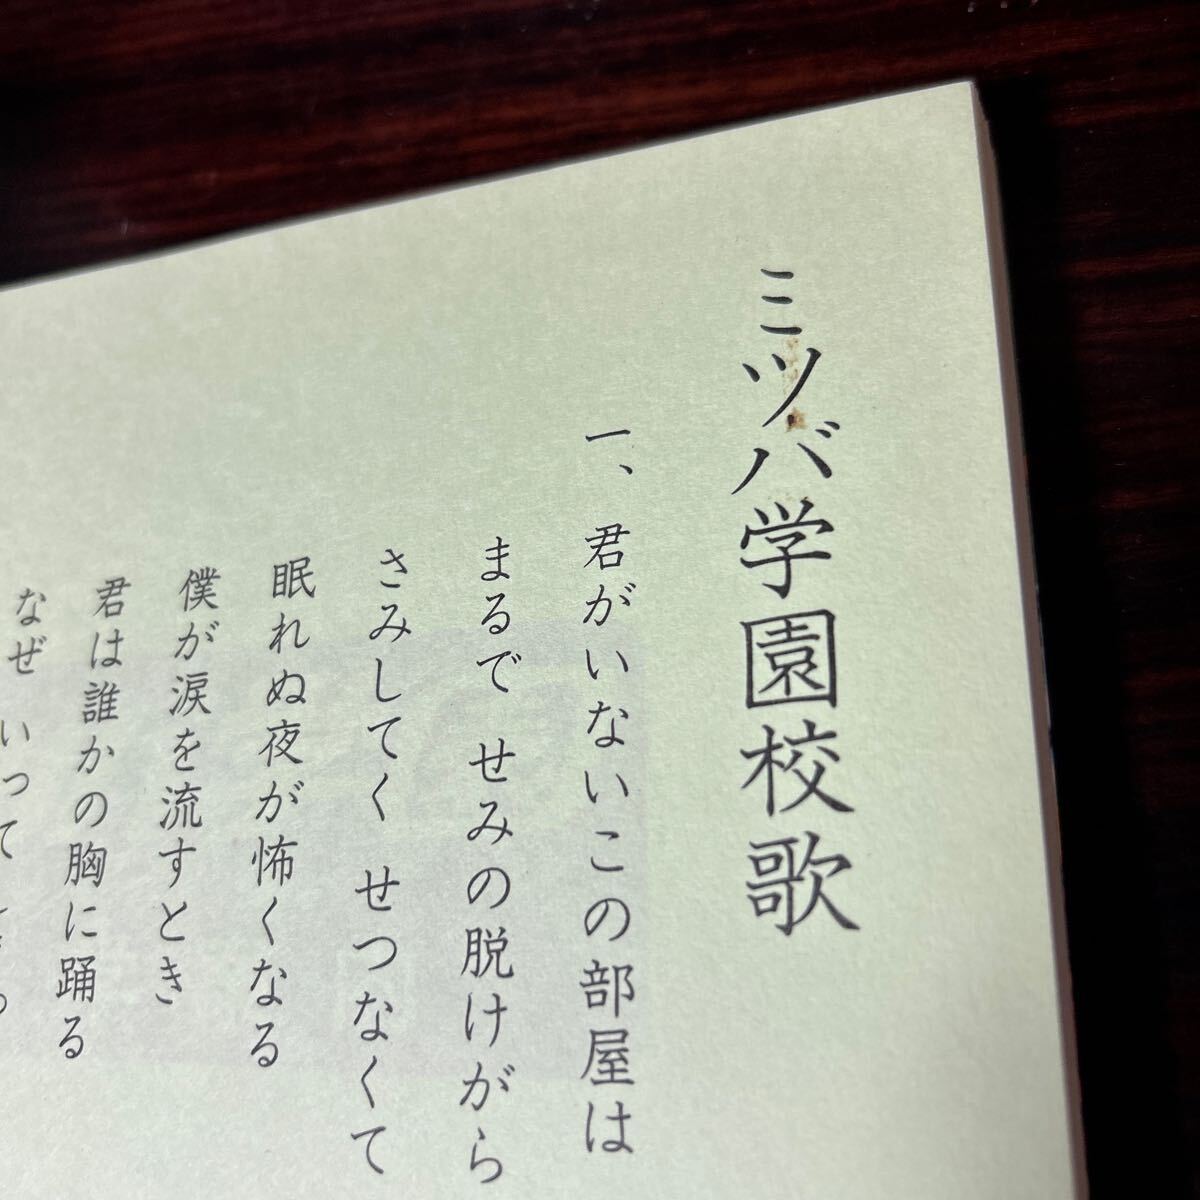 ミツバ学園校歌
一、君がいないこの部屋は
まるで せみの脱けがら
さみしてく せつなくて
眠れぬ夜が怖くなる
僕が涙を流すとき
君は誰かの胸に踊る
なぜ いって